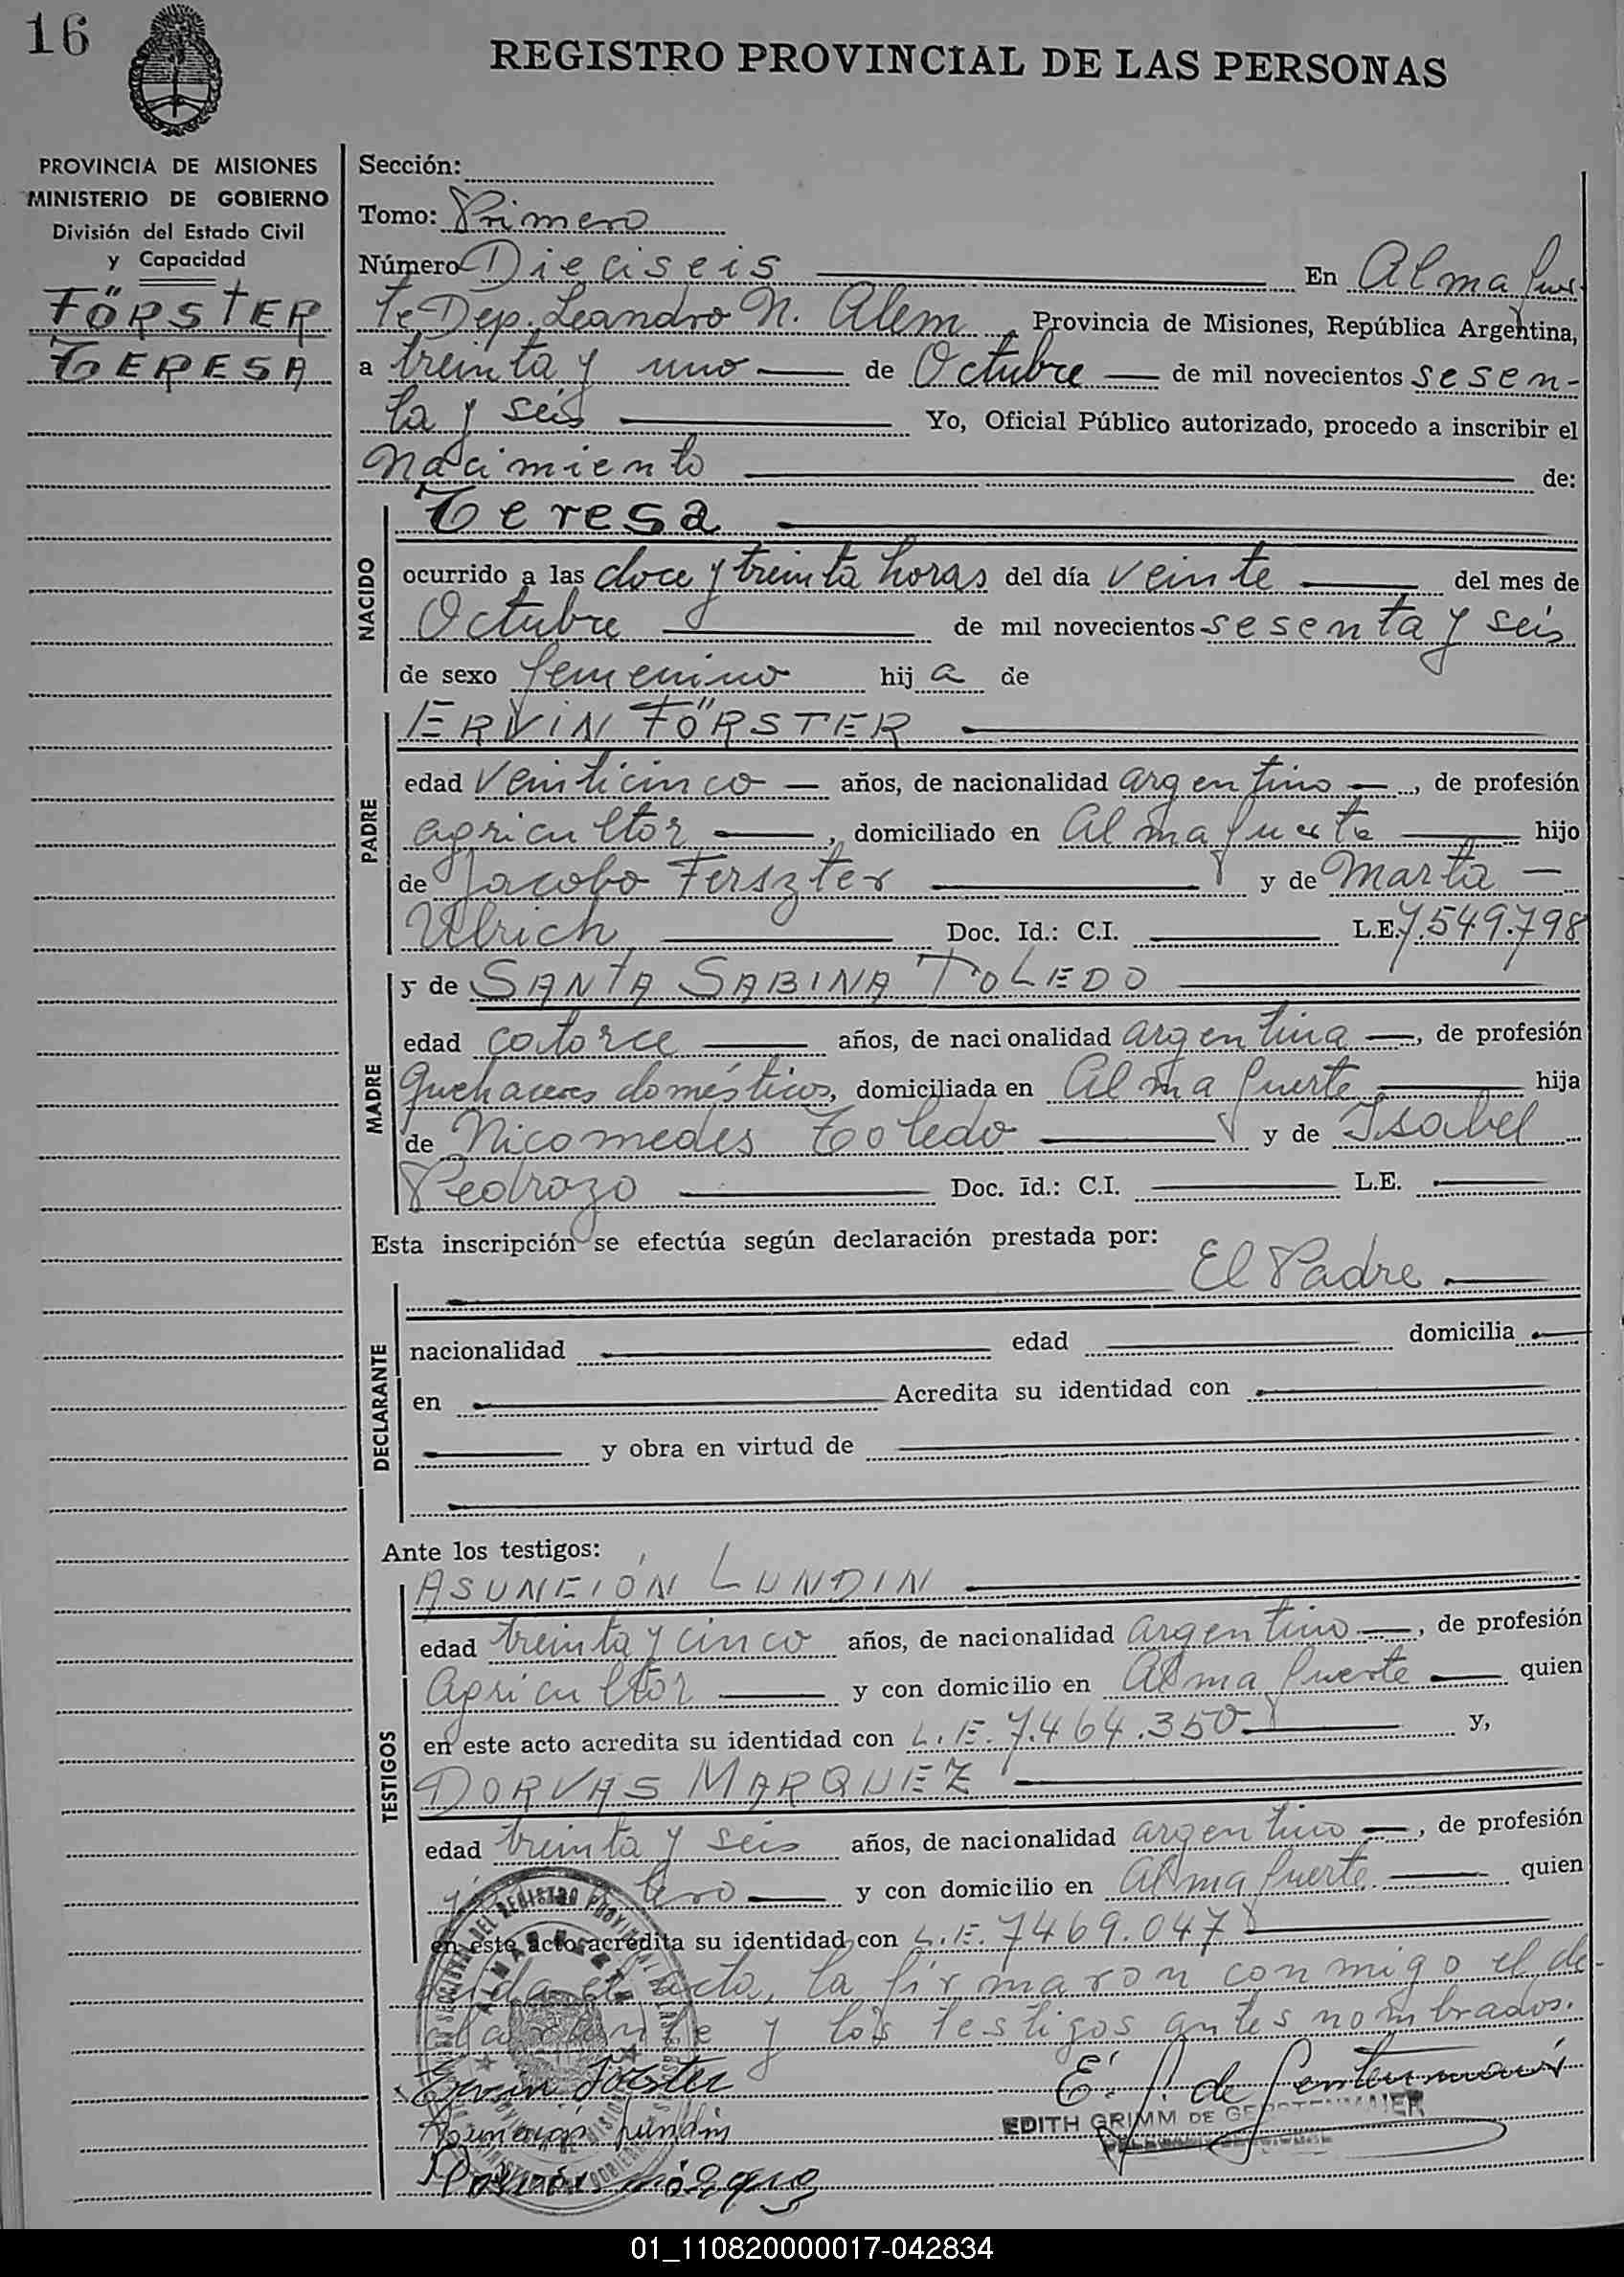 16
REGISTRO PROVINCIAL DE LAS PERSONAS
PROVINCIA DE MISIONES
MINISTERIO DE GOBIERNO
División del Estado Civil
y Capacidad
FÖRSTER
TERESA
Sección:
Tomo: Primero
Número Dieciseis En Almafuer
te Dep. Leandro N. Alem, Provincia de Misiones, República Argentina,
a treinta y uno de Octubre de mil novecientos sesen-
ta y seis Yo, Oficial Público autorizado, procedo a inscribir el
nacimiento de:
NACIDO
Teresa
ocurrido a las doce y treinta horas del día veinte del mes de
Octubre de mil novecientos sesenta y seis
de sexo femenino hija de
PADRE
ERVIN FÖRSTER
edad veinticinco años, de nacionalidad argentino, de profesión
agricultor, domiciliado en Almafuerte hijo
de Jacobo Ferszter y de Marta
Ulrich Doc. Id.: C.I. L.E. 7.549.798
MADRE
y de SANTA SABINA TOLEDO
edad catorce años, de nacionalidad argentina, de profesión
Quehaceres domésticos, domiciliada en Almafuerte hija
de Nicomedes Toledo y de Isabel
Pedrozo Doc. Id.: C.I. L.E.
Esta inscripción se efectúa según declaración prestada por:
El Padre
DECLARANTE
nacionalidad edad domicilia
en Acredita su identidad con
y obra en virtud de
Ante los testigos:
TESTIGOS
ASUNCIÓN LUNDIN
edad treinta y cinco años, de nacionalidad argentino, de profesión
Agricultor y con domicilio en Almafuerte quien
en este acto acredita su identidad con L.E. 7.464.350 y,
DORVAS MARQUEZ
edad treinta y seis años, de nacionalidad argentino, de profesión
y con domicilio en Almafuerte. quien
en este acto acredita su identidad con L.E. 7469.047
acta, la firmaron conmigo el de-
clarante y los testigos antes nombrados.
Ervin Förster
E. G. de Gerstenmaier
EDITH GRIMM DE GERSTENMAIER
Asunción Lundin
01_110820000017-042834